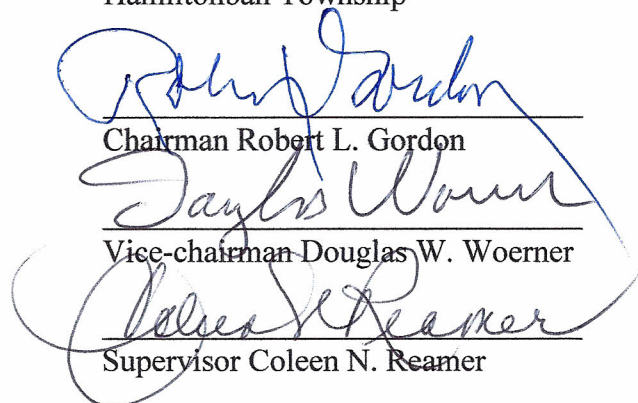 Hamiltonban Township
Robert L Gordon
Chairman Robert L. Gordon
Douglas Woerner
Vice-chairman Douglas W. Woerner
Coleen N Reamer
Supervisor Coleen N. Reamer